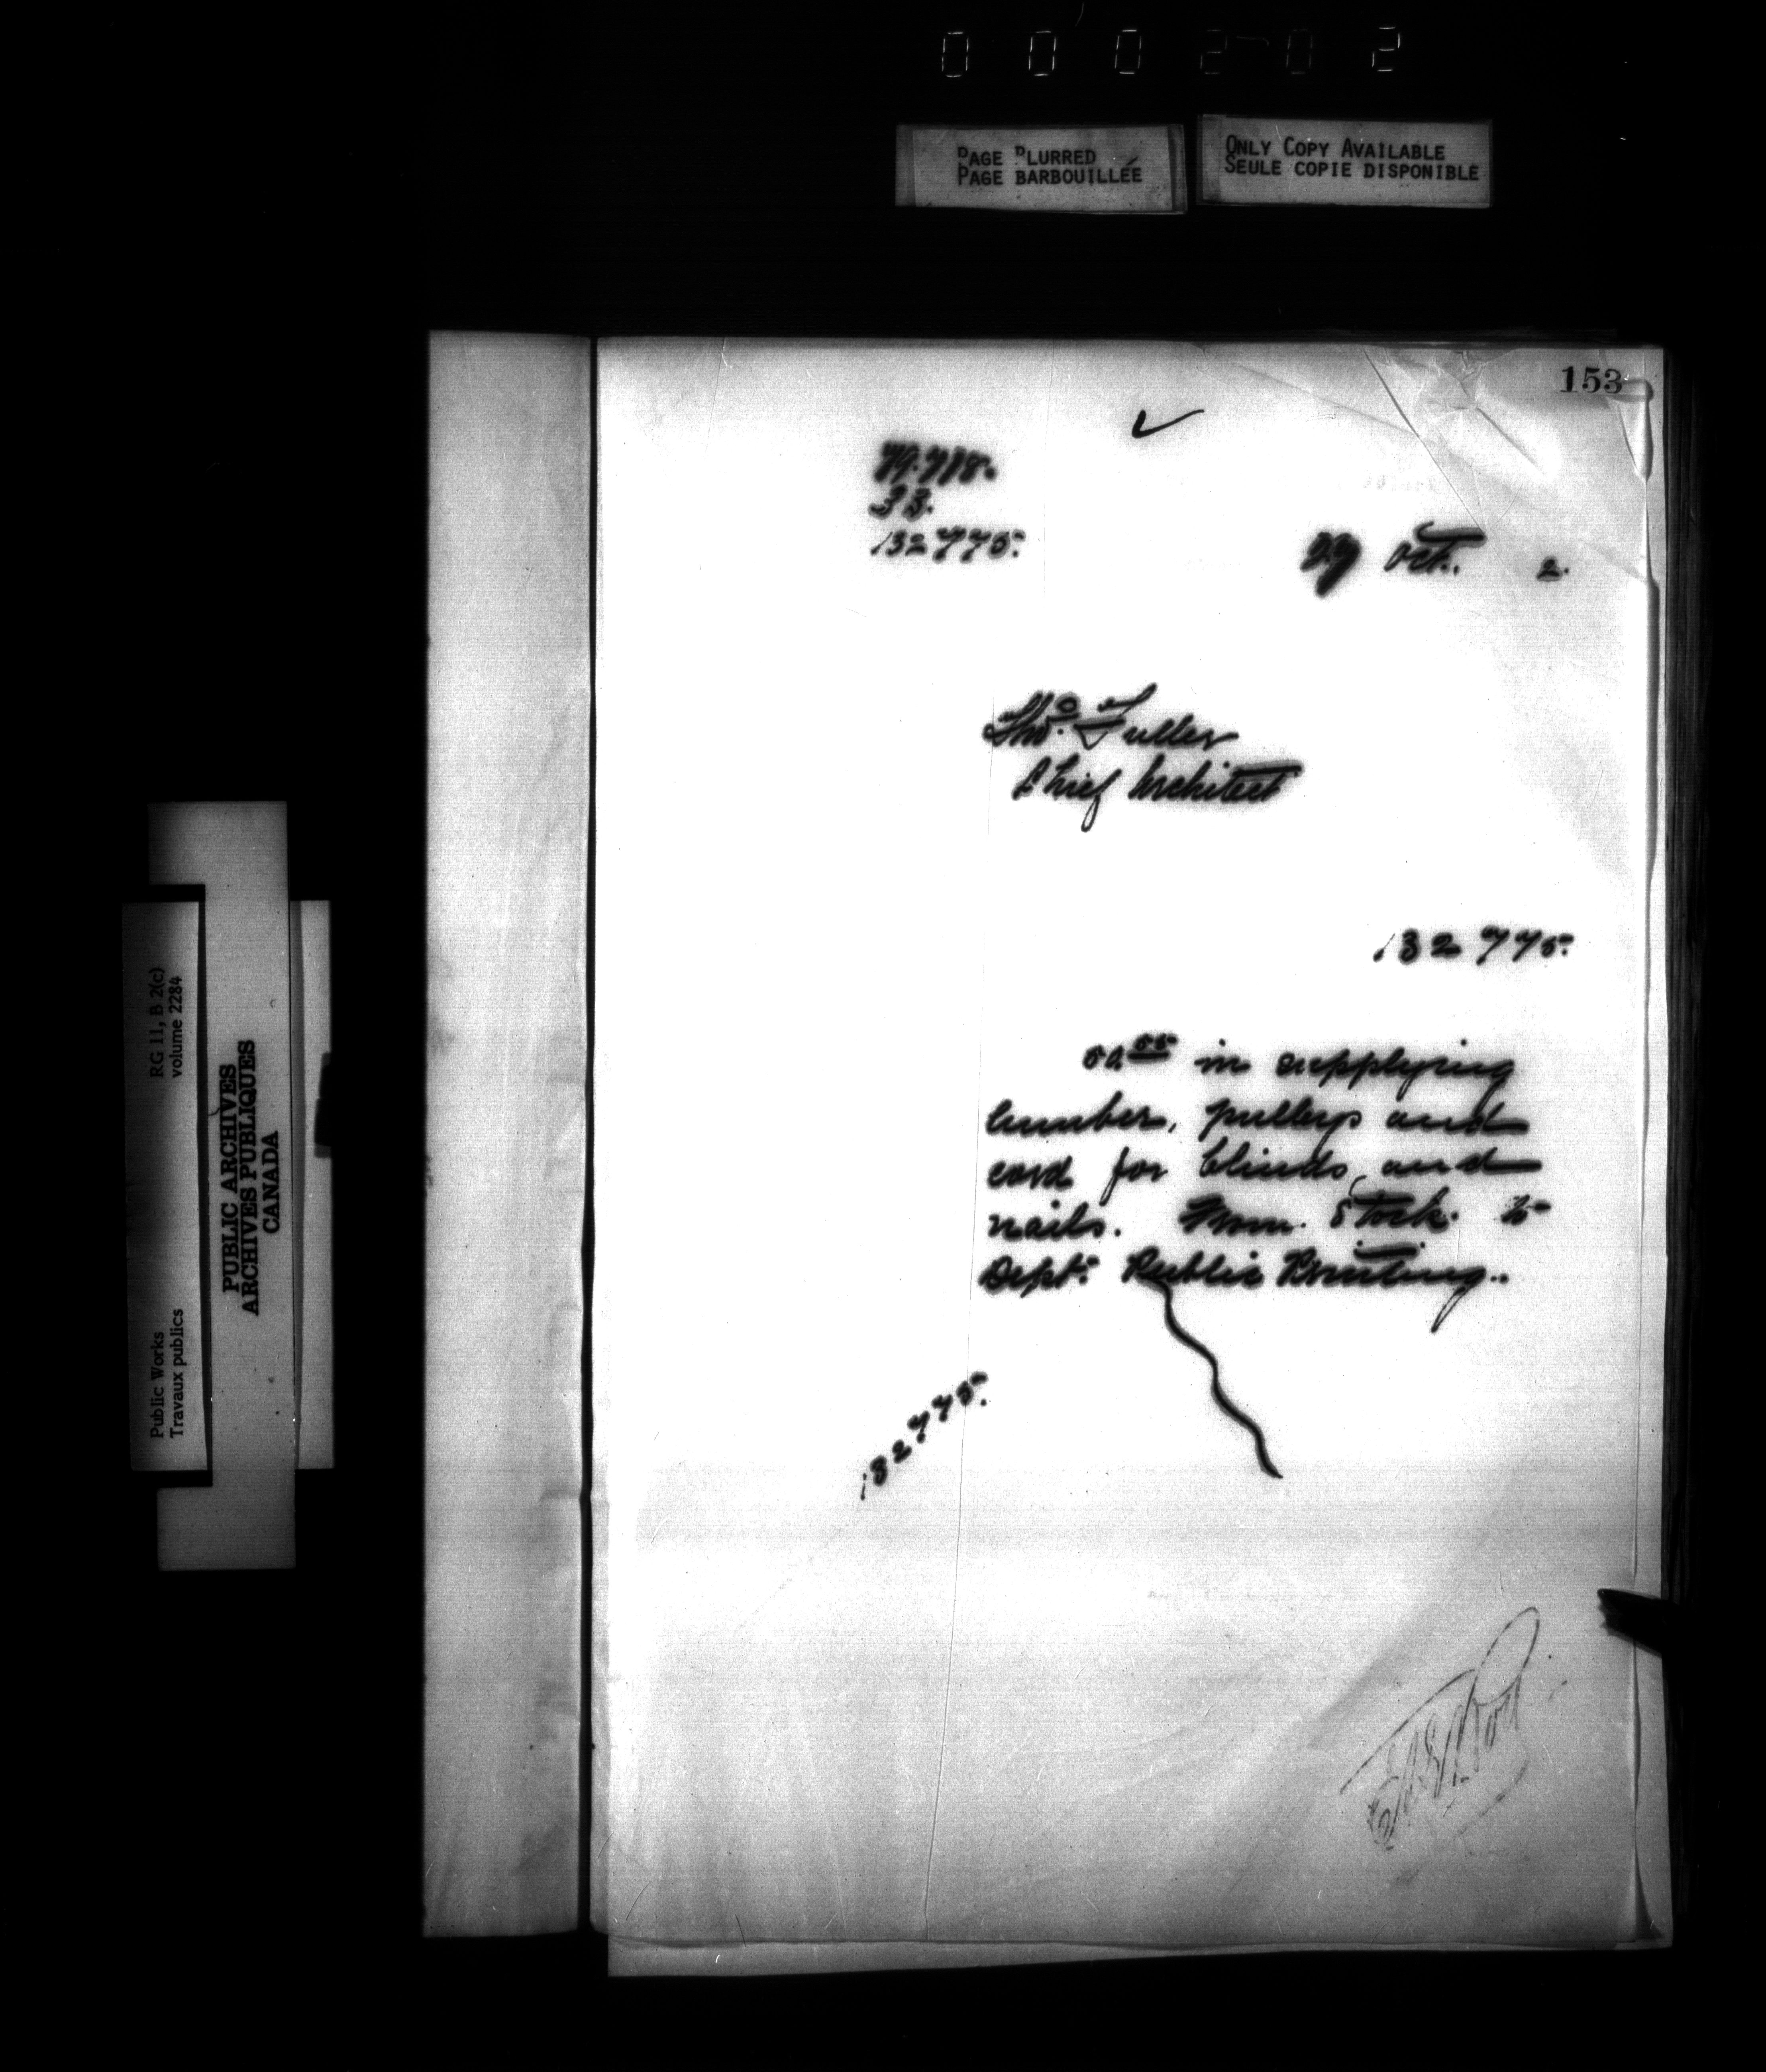 0 0 0 2 0 2
PAGE BLURRED
PAGE BARBOUILLÉE
ONLY COPY AVAILABLE
SEULE COPIE DISPONIBLE
153
33.
132775.
Oct. 2.
Thos. Fuller
Chief Architect
132775.
in supplying
lumber, pulleys and
cord for blinds, and
nails. From Stock to
Dept. Public Printing.
132775.
RG 11, B 2(c)
volume 2284
PUBLIC ARCHIVES
ARCHIVES PUBLIQUES
CANADA
Public Works
Travaux publics